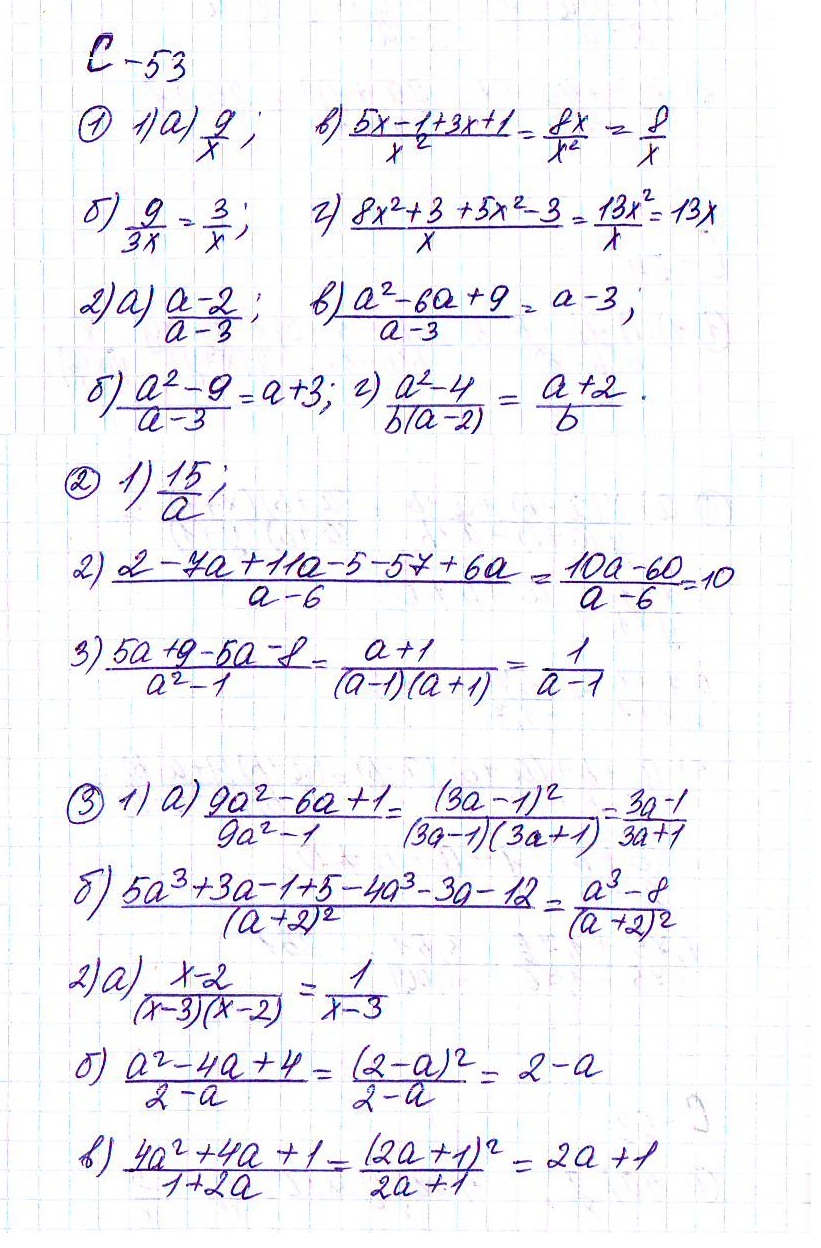 С-53
① 1) а) 9/x; в) (5x-1+3x+1)/x² = 8x/x² = 8/x
б) 9/3x = 3/x; г) (8x²+3+5x²-3)/x = 13x²/x = 13x
2) а) (a-2)/(a-3); в) (a²-6a+9)/(a-3) = a-3;
б) (a²-9)/(a-3) = a+3; г) (a²-4)/(b(a-2)) = (a+2)/b.
② 1) 15/a;
2) (2-7a+11a-5-57+6a)/(a-6) = (10a-60)/(a-6) = 10
3) (5a+9-5a-8)/(a²-1) = (a+1)/((a-1)(a+1)) = 1/(a-1)
③ 1) а) (9a²-6a+1)/(9a²-1) = (3a-1)²/((3a-1)(3a+1)) = (3a-1)/(3a+1)
б) (5a³+3a-1+5-4a³-3a-12)/(a+2)² = (a³-8)/(a+2)²
2) а) (x-2)/((x-3)(x-2)) = 1/(x-3)
б) (a²-4a+4)/(2-a) = (2-a)²/(2-a) = 2-a
в) (4a²+4a+1)/(1+2a) = (2a+1)²/(2a+1) = 2a+1